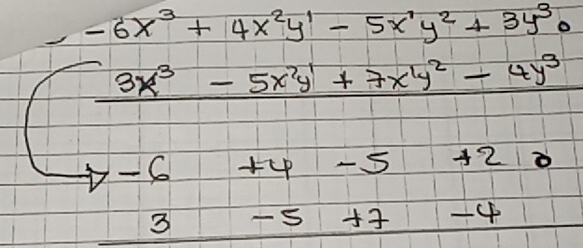 -6x³ + 4x²y¹ - 5x¹y² + 3y³.
3x³ - 5x²y¹ + 7x¹y² - 4y³
-6 +4 -5 +2 0
3 -5 +7 -4